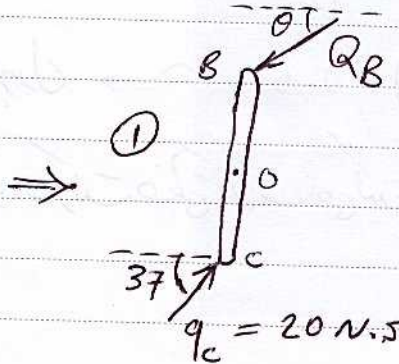 θ
B
Q_B
①
⇒
O
C
37
q_c = 20 N.S